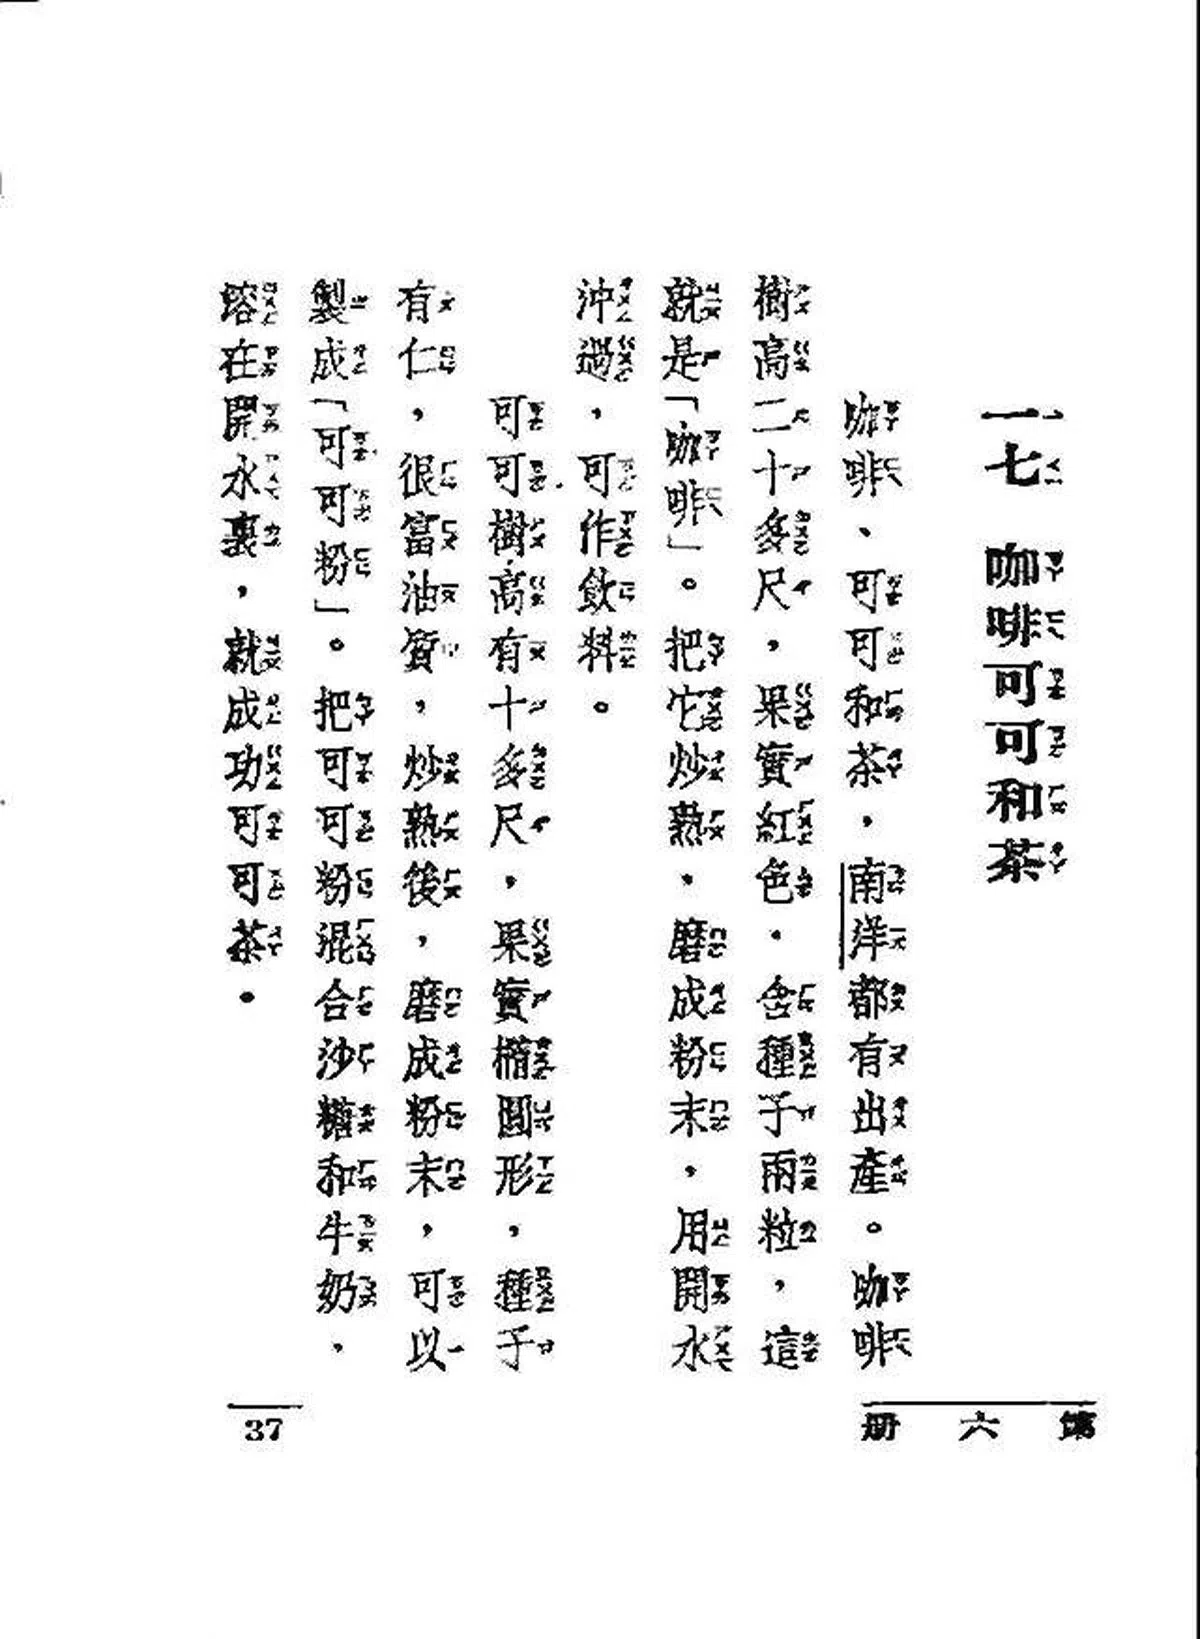 一七 咖啡可可和茶
咖啡、可可和茶,南洋都有出產。咖啡
樹高二十多尺,果實紅色,含種子兩粒,這
就是「咖啡」。把它炒熟,磨成粉末,用開水
沖過,可作飲料。
可可樹高有十多尺,果實橢圓形,種子
有仁,很富油質,炒熟後,磨成粉末,可以
製成「可可粉」。把可可粉混合沙糖和牛奶,
溶在開水裏,就成功可可茶。
第六册
37